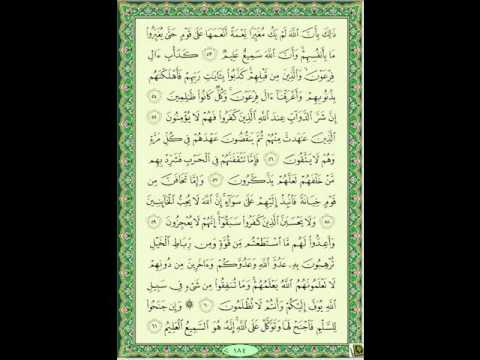 ذَٰلِكَ بِأَنَّ ٱللَّهَ لَمْ يَكُ مُغَيِّرًا نِّعْمَةً أَنْعَمَهَا عَلَىٰ قَوْمٍ حَتَّىٰ يُغَيِّرُوا۟
مَا بِأَنفُسِهِمْ وَأَنَّ ٱللَّهَ سَمِيعٌ عَلِيمٌ ٥٣ كَدَأْبِ ءَالِ
فِرْعَوْنَ وَٱلَّذِينَ مِن قَبْلِهِمْ كَذَّبُوا۟ بِـَٔايَـٰتِ رَبِّهِمْ فَأَهْلَكْنَـٰهُم
بِذُنُوبِهِمْ وَأَغْرَقْنَآ ءَالَ فِرْعَوْنَ وَكُلٌّ كَانُوا۟ ظَـٰلِمِينَ ٥٤
إِنَّ شَرَّ ٱلدَّوَآبِّ عِندَ ٱللَّهِ ٱلَّذِينَ كَفَرُوا۟ فَهُمْ لَا يُؤْمِنُونَ ٥٥
ٱلَّذِينَ عَـٰهَدتَّ مِنْهُمْ ثُمَّ يَنقُضُونَ عَهْدَهُمْ فِى كُلِّ مَرَّةٍ
وَهُمْ لَا يَتَّقُونَ ٥٦ فَإِمَّا تَثْقَفَنَّهُمْ فِى ٱلْحَرْبِ فَشَرِّدْ بِهِم
مَّنْ خَلْفَهُمْ لَعَلَّهُمْ يَذَّكَّرُونَ ٥٧ وَإِمَّا تَخَافَنَّ مِن
قَوْمٍ خِيَانَةً فَٱنۢبِذْ إِلَيْهِمْ عَلَىٰ سَوَآءٍ إِنَّ ٱللَّهَ لَا يُحِبُّ ٱلْخَآئِنِينَ
٥٨ وَلَا يَحْسَبَنَّ ٱلَّذِينَ كَفَرُوا۟ سَبَقُوٓا۟ إِنَّهُمْ لَا يُعْجِزُونَ ٥٩
وَأَعِدُّوا۟ لَهُم مَّا ٱسْتَطَعْتُم مِّن قُوَّةٍ وَمِن رِّبَاطِ ٱلْخَيْلِ
تُرْهِبُونَ بِهِۦ عَدُوَّ ٱللَّهِ وَعَدُوَّكُمْ وَءَاخَرِينَ مِن دُونِهِمْ
لَا تَعْلَمُونَهُمُ ٱللَّهُ يَعْلَمُهُمْ وَمَا تُنفِقُوا۟ مِن شَىْءٍ فِى سَبِيلِ
ٱللَّهِ يُوَفَّ إِلَيْكُمْ وَأَنتُمْ لَا تُظْلَمُونَ ٦٠ ۞ وَإِن جَنَحُوا۟
لِلسَّلْمِ فَٱجْنَحْ لَهَا وَتَوَكَّلْ عَلَى ٱللَّهِ إِنَّهُۥ هُوَ ٱلسَّمِيعُ ٱلْعَلِيمُ ٦١
١٨٤